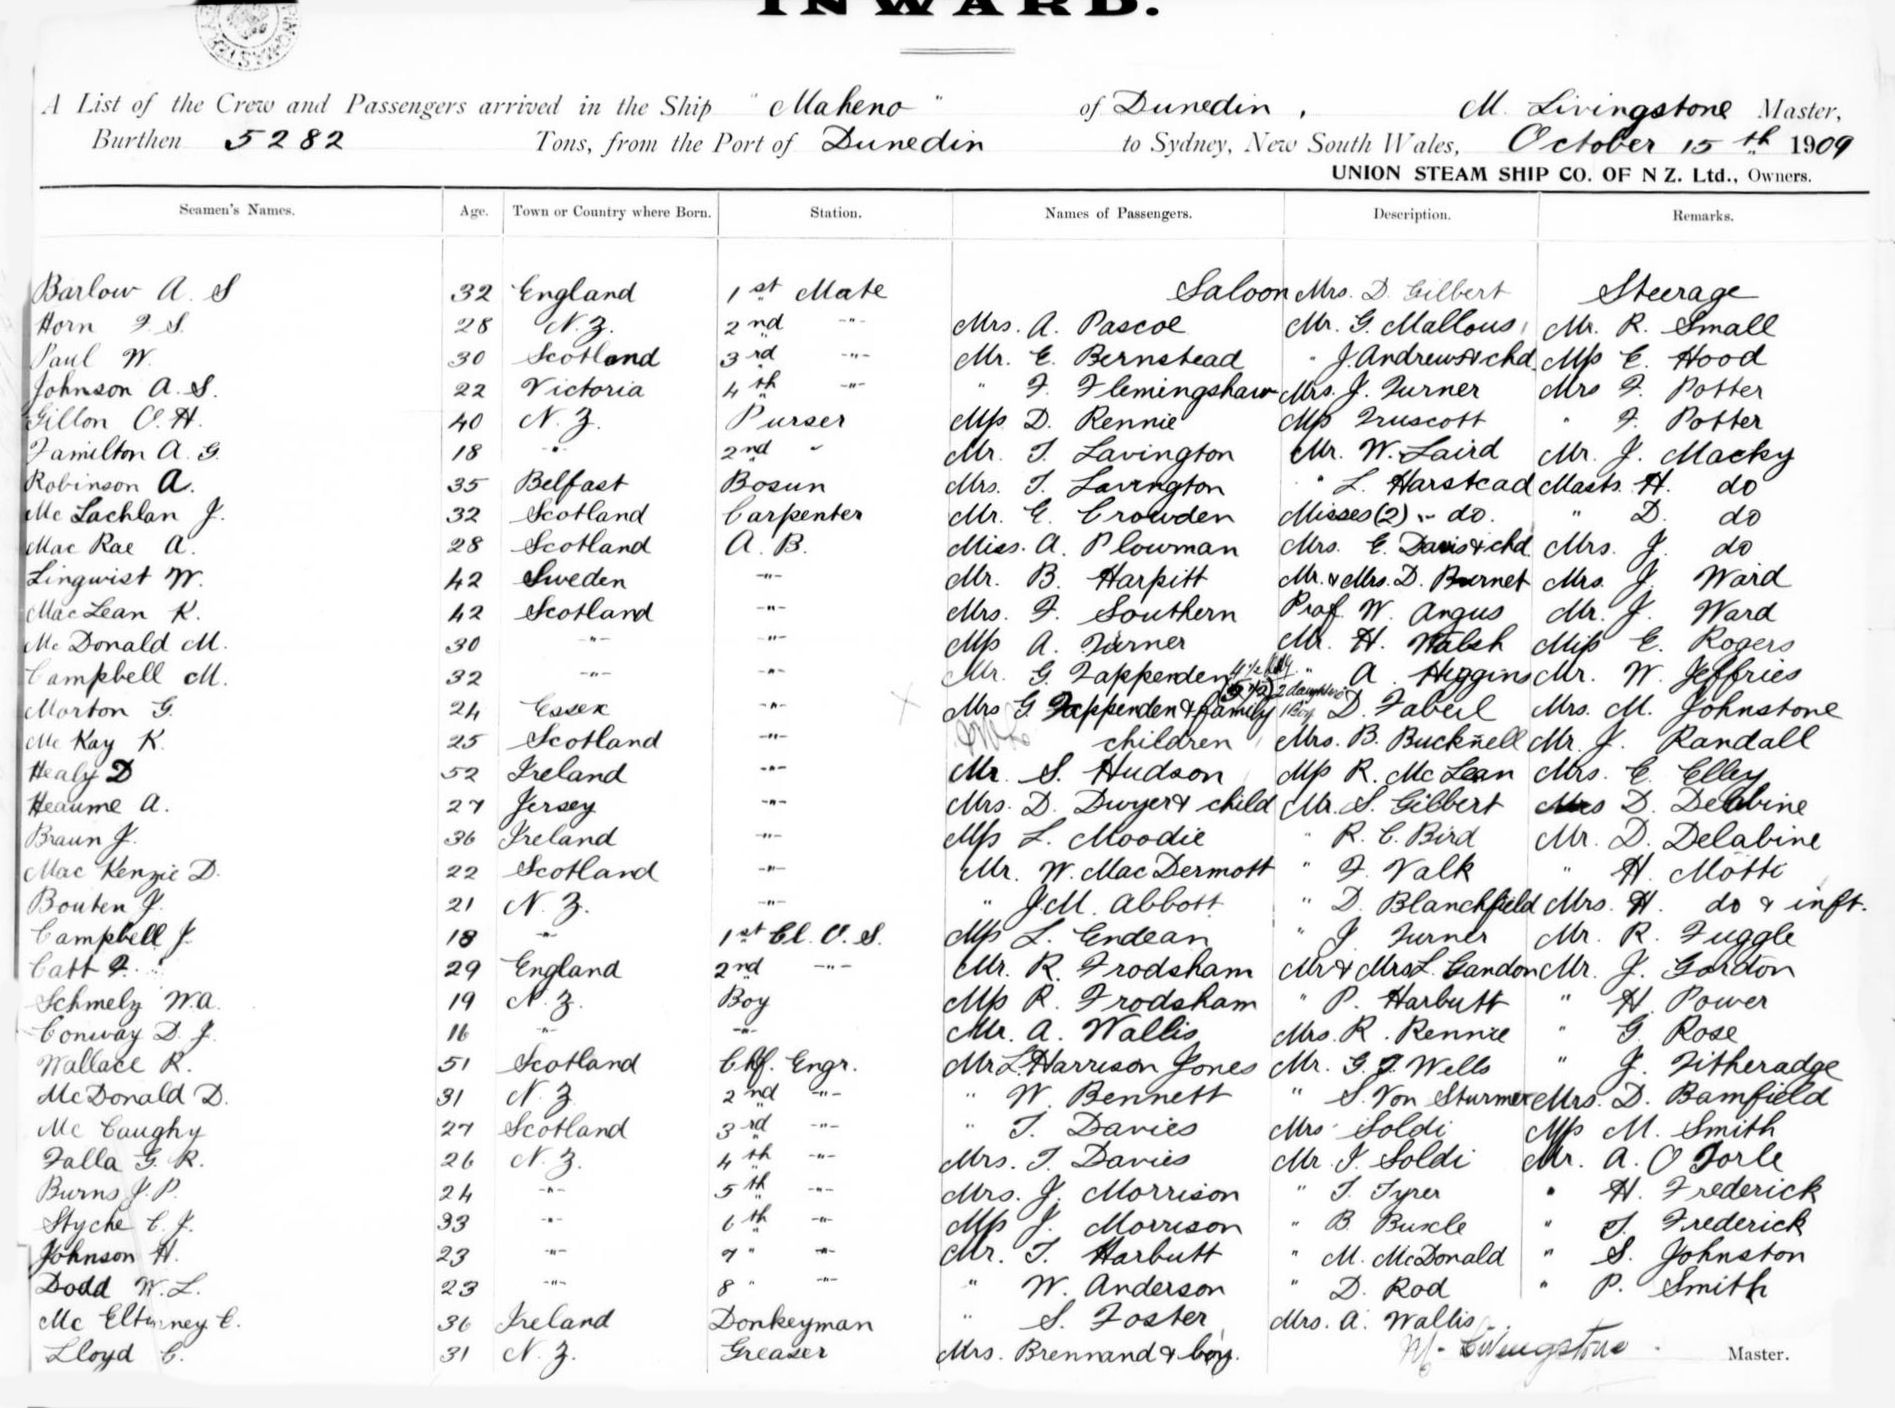 INWARD.
A List of the Crew and Passengers arrived in the Ship "Maheno" of Dunedin, M. Livingstone Master,
Burthen 5282 Tons, from the Port of Dunedin to Sydney, New South Wales, October 15th 1909
UNION STEAM SHIP CO. OF N Z. Ltd., Owners.
Seamen's Names. Age. Town or Country where Born. Station. Names of Passengers. Description. Remarks.
Barlow A. S 32 England 1st Mate Saloon Mrs. D. Gilbert Steerage
Horn F. S. 28 N. Z. 2nd -"- Mrs. A. Pascoe Mr. G. Mallous Mr. R. Small
Paul W. 30 Scotland 3rd -"- Mr. E. Bernstead " J. Andrews & chd. Miss E. Hood
Johnson A. S. 22 Victoria 4th -"- " F. Flemingshaw Mrs. J. Turner Mrs F. Potter
Gillon O. H. 40 N. Z. Purser Miss D. Rennie Miss Truscott " F. Potter
Familton A. G. 18 -"- 2nd " Mr. T. Lavington Mr. W. Laird Mr. J. Macky
Robinson A. 35 Belfast Bosun Mrs. T. Lavington " L. Harstead Masts. H. do
Mc Lachlan J. 32 Scotland Carpenter Mr. E. Crowden Misses (2) " do. " D. do
Mac Rae A. 28 Scotland A. B. Miss. A. Plowman Mrs. E. Davis & chd Mrs. J. do
Lingwist W. 42 Sweden -"- Mr. B. Harpitt Mr. & Mrs. D. Burnet Mrs. J. Ward
Mac Lean K. 42 Scotland -"- Mrs. F. Southern Prof. W. Angus Mr. J. Ward
Mc Donald M. 30 -"- -"- Miss A. Turner Mr. H. Walsh Miss E. Rogers
Campbell M. 32 -"- -"- Mr. G. Fappenden " A. Higgins Mr. W. Jeffries
Morton G. 24 Essex -"- Mrs G. Fappenden & family 2 daughters 1 Boy D. Faberl Mrs. M. Johnstone
Mc Kay K. 25 Scotland -"- children Mrs. B. Bucknell Mr. J. Randall
Healy D 52 Ireland -"- Mr. S. Hudson Miss R. Mc Lean Mrs. E. Elley
Heaume A. 27 Jersey -"- Mrs. D. Dwyer & child Mr. S. Gilbert Mrs D. Delabine
Braun J. 36 Ireland -"- Miss L. Moodie " R. C. Bird Mr. D. Delabine
Mac Kenzie D. 22 Scotland -"- Mr. W. Mac Dermott " F. Valk " H. Motti
Bouten J. 21 N. Z. -"- " J. M. Abbott " D. Blanchfield Mrs. H. do & inft.
Campbell J. 18 -"- 1st Cl. O. S. Miss L. Endean " J. Turner Mr. R. Fuggle
Catt F. 29 England 2nd -"- Mr. R. Frodsham Mr & Mrs L. Gandon Mr. J. Gordon
Schmelz W. A. 19 N. Z. Boy Miss R. Frodsham " P. Harbutt " H. Power
Conway D. J. 16 -"- -"- Mr. A. Wallis Mrs. R. Rennie " G. Rose
Wallace R. 51 Scotland Chf. Engr. Mr L. Harrison Jones Mr. G. F. Wells " J. Titheradge
McDonald D. 31 N. Z. 2nd -"- " W. Bennett " S. Von Sturmer Mrs. D. Bamfield
Mc Caughy 27 Scotland 3rd -"- " T. Davies Mrs Soldi Miss M. Smith
Falla G. R. 26 N. Z. 4th -"- Mrs. T. Davies Mr. I. Soldi Mr. A. O Torle
Burns J. P. 24 -"- 5th -"- Mrs. J. Morrison " T. Tyrer " H. Frederick
Styche C. J. 33 -"- 6th -"- Miss J. Morrison " B. Buscle " J. Frederick
Johnson H. 23 -"- 7 " -"- Mr. T. Harbutt " M. McDonald " S. Johnston
Dodd W. L. 23 -"- 8 " -"- " W. Anderson " D. Rod " P. Smith
Mc Elturney C. 36 Ireland Donkeyman " S. Foster Mrs. A. Wallis
Lloyd C. 31 N. Z. Greaser Mrs. Brennand & boy. M. Livingstone Master.